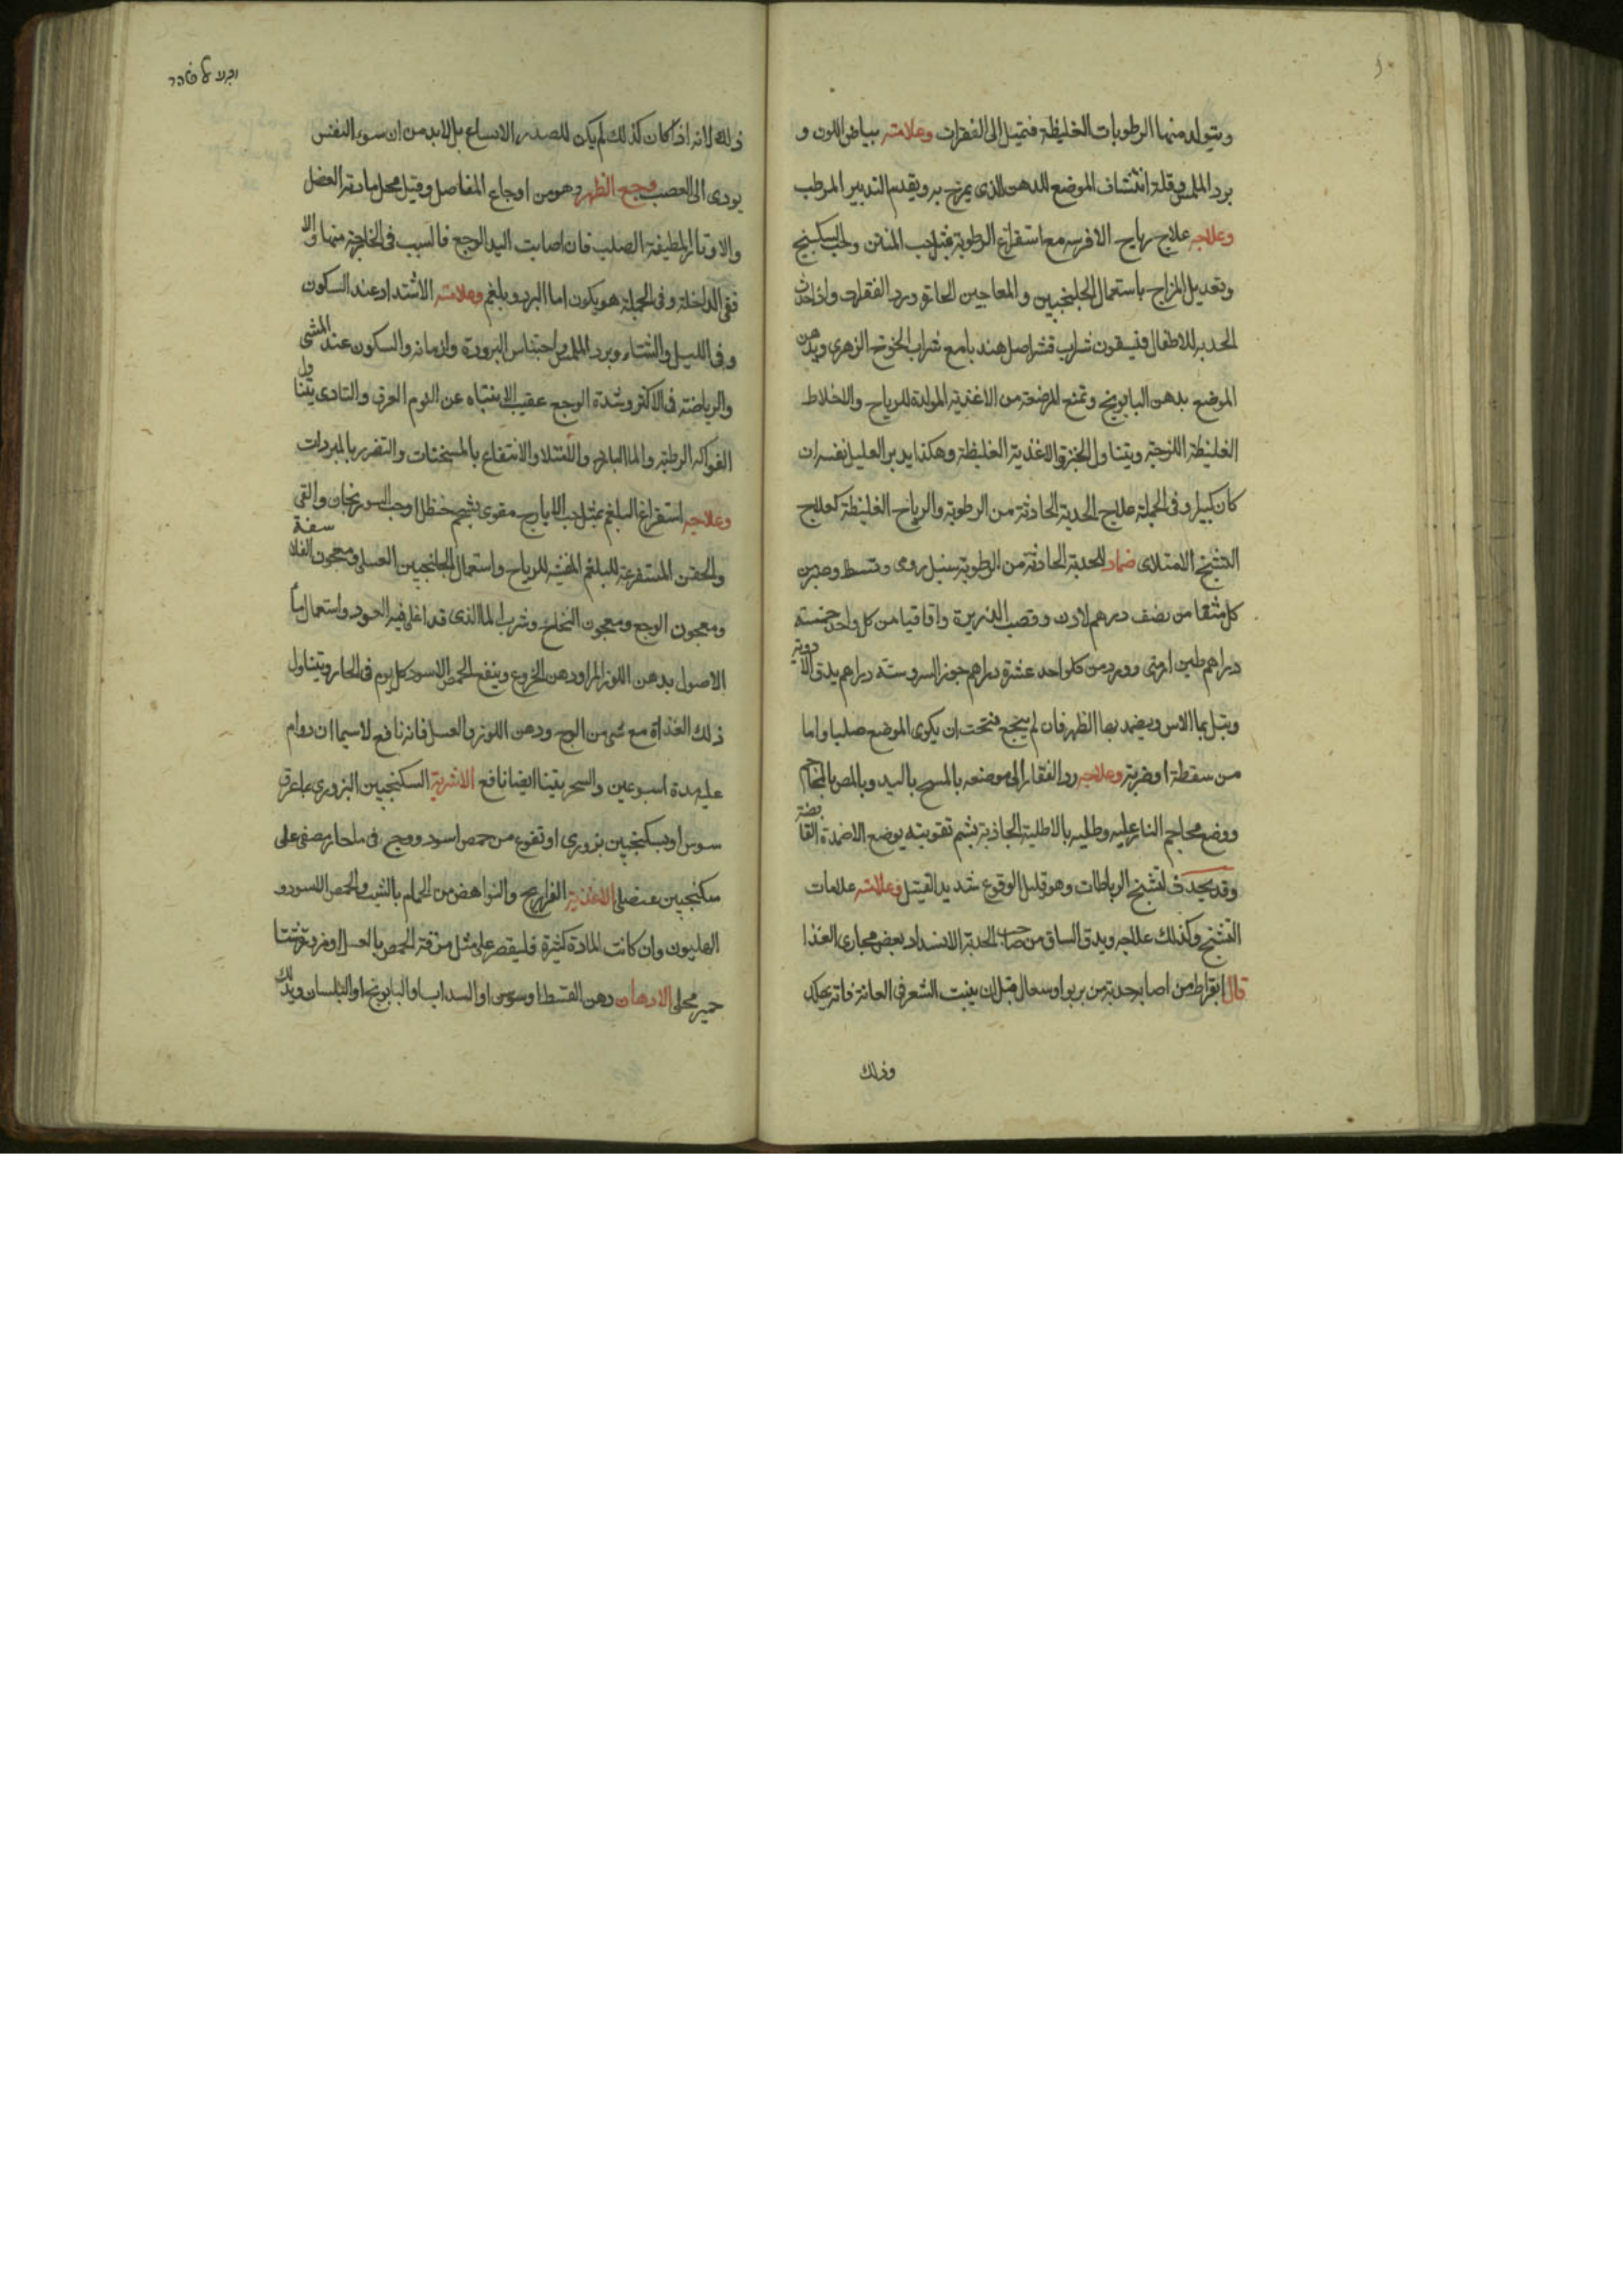 ويتولد منها الرطوبات الغليظة فتميل الى الفقرات وعلامته بياض اللون و
برد الملمس وقلة انتشاف الموضع للدهن الذى يمرخ به ويقدم التدبير المرطب
وعلاجه علاج رياح الافرسه مع استفراغ الرطوبة بمثل حب المنتن وحب السكبينج
وتعديل المزاج باستعمال الجلنجبين والمعاجين الحارة ورد الفقرات واذا حدث
الحدبه للاطفال فيسقون شراب قشر اصل هندبا مع شراب الخوخ الزهرى ويدهن
الموضع بدهن البابونج وتمنع المرضعة من الاغذية المولدة للرياح والاخلاط
الغليظة اللزجة ويتناول الخبز والاغذية الغليظة وهكذا يدبر العليل نفسه ان
كان كبيرا وفى الجملة علاج الحدبة الحادثة من الرطوبة والرياح الغليظة كعلاج
التشنج الامتلاى ضماد للحدبة الحادثة من الرطوبة سنبل رومى وقسط وصبر من
كل مثقا من نصف درهم لادن وقصب الذريرة واقاقيا من كل واحد خمسة
دراهم طين ارمنى وورد من كلواحد عشرة دراهم جوز السرو ستة دراهم يدق الادوية
ويبل بما الاس ويضمد بها الظهر فان لم ينجع فتحت ان يكوى الموضع صليبا واما
من سقطة او ضربة وعلاجه رد الفقار الى موضعه بالمسح باليد وبالمص بالمحاجم
ووضع محاجم النار عليه وطليه بالاطلية الجاذبة بثم تقويته بوضع الاضمدة القابضة
وقد يحدث لتشنج الرباطات وهو قليل الوقوع شديد القتل وعلامته علامات
التشنج وكذلك علاجه ويدق الساق من صاحب الحدبة الانسداد بعض مجارى الغذا
قال ابقراط من اصابه حدبة من ربو او سعال قبل ان ينبت الشعر فى العانة فانه يهلك
وذلك
ذلك لانه اذا كان كذلك لم يكن للصدر الاتساع بل لابد من ان سوء النفس
يودى الى العصب وجع الظهر وهو من اوجاع المفاصل وقيل محل مادته العضل
والاوتار المطيفة الصلب فان اصابت اليد الوجع فالسبب فى الخارجة منها والا
ففى الداخلة وفى الجملة هو يكون اما البرد وبلغم وعلامته الاشتداد عند السكون
وفى الليل والشتاء وبرد الملمس واحتباس البرودة وازمانه والسكون عند المشى
والرياضة فى الاكثر وشدة الوجع عقيب الانتباه عن النوم الغرق والتاذى بتناول
الفواكه الرطبة والما البارد والامتلا والانتفاع بالمسخنات والتضرر بالمبردات
وعلاجه استفراغ البلغم بمثل حب الايارج مقوى بشحم حنظل وحب السورنجان والقى
والحقن المستفرغة للبلغم المفشة للرياح واستعمال الجلنجبين العسلى ومعجون الفلاسفة
ومعجون الوج ومعجون النجاح وشرب الما الذى قد اغلى فيه العود واستعمال ما
الاصول بدهن اللوز المر او دهن الخروع وينفع الحمص الاسود كل يوم فى الحار ويتناول
ذلك الغذاة مع شى من الوج ودهن اللوز والعسل فانه نافع لاسيما ان دوام
عليه مدة اسبوعين والسجزنيا ايضا نافع الاشربة السكنجبين البزورى بما عرق
سوس او سكنجبين بزورى او نقوع من حمص اسود ووج فى ما حار يصفى على
سكنجبين عنصلى الاغذية الفراريج والنواهض من الحمام بالشبت والحمص الاسود و
الهليون وان كانت المادة كثيرة فليقصر على مثل مرقة الحمص بالعسل او مزورة قرتنا
حمير محلى الادهان دهن القسط او سوس او السداب او البابونج او البلسان ويدلك